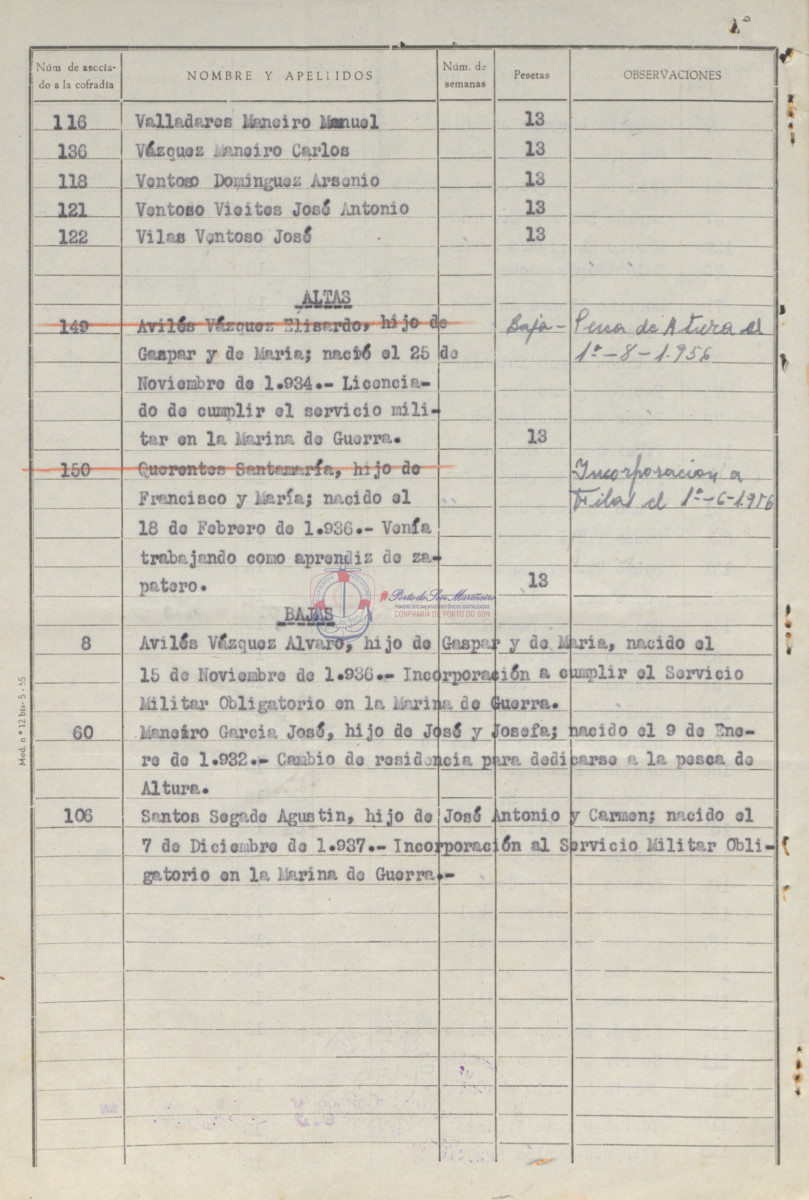 Núm de asocia-
do a la cofradía
NOMBRE Y APELLIDOS
Núm. de
semanas
Pesetas
OBSERVACIONES
116 Valladares Maneiro Manuel 13
136 Vázquez Maneiro Carlos 13
118 Ventoso Dominguez Arsenio 13
121 Ventoso Vieites José Antonio 13
122 Vilas Ventoso José 13
ALTAS
149 Avilés Vázquez Elisardo, hijo de Baja - Pesca de Altura el
Gaspar y de Maria; nació el 25 de 1º-8-1.956
Noviembre de 1.934.- Licencia-
do de cumplir el servicio mili-
tar en la Marina de Guerra. 13
150 Querentes Santamaría, hijo de Incorporacion a
Francisco y María; nacido el Filas el 1º-6-1.956
18 de Febrero de 1.936.- Venía
trabajando como aprendiz de za-
patero. 13
Porto do Son Mariñeiro
CONFRARÍA DE PORTO DO SON
BAJAS
8 Avilés Vázquez Alvaro, hijo de Gaspar y de Maria, nacido el
15 de Noviembre de 1.936.- Incorporación a cumplir el Servicio
Militar Obligatorio en la Marina de Guerra.
60 Maneiro Garcia José, hijo de José y Josefa; nacido el 9 de Ene-
ro de 1.932.- Cambio de residencia para dedicarse a la pesca de
Altura.
106 Santos Segade Agustin, hijo de José Antonio y Carmen; nacido el
7 de Diciembre de 1.937.- Incorporación al Servicio Militar Obli-
gatorio en la Marina de Guerra.-
Mod. n º 12 bis - 5 - 55